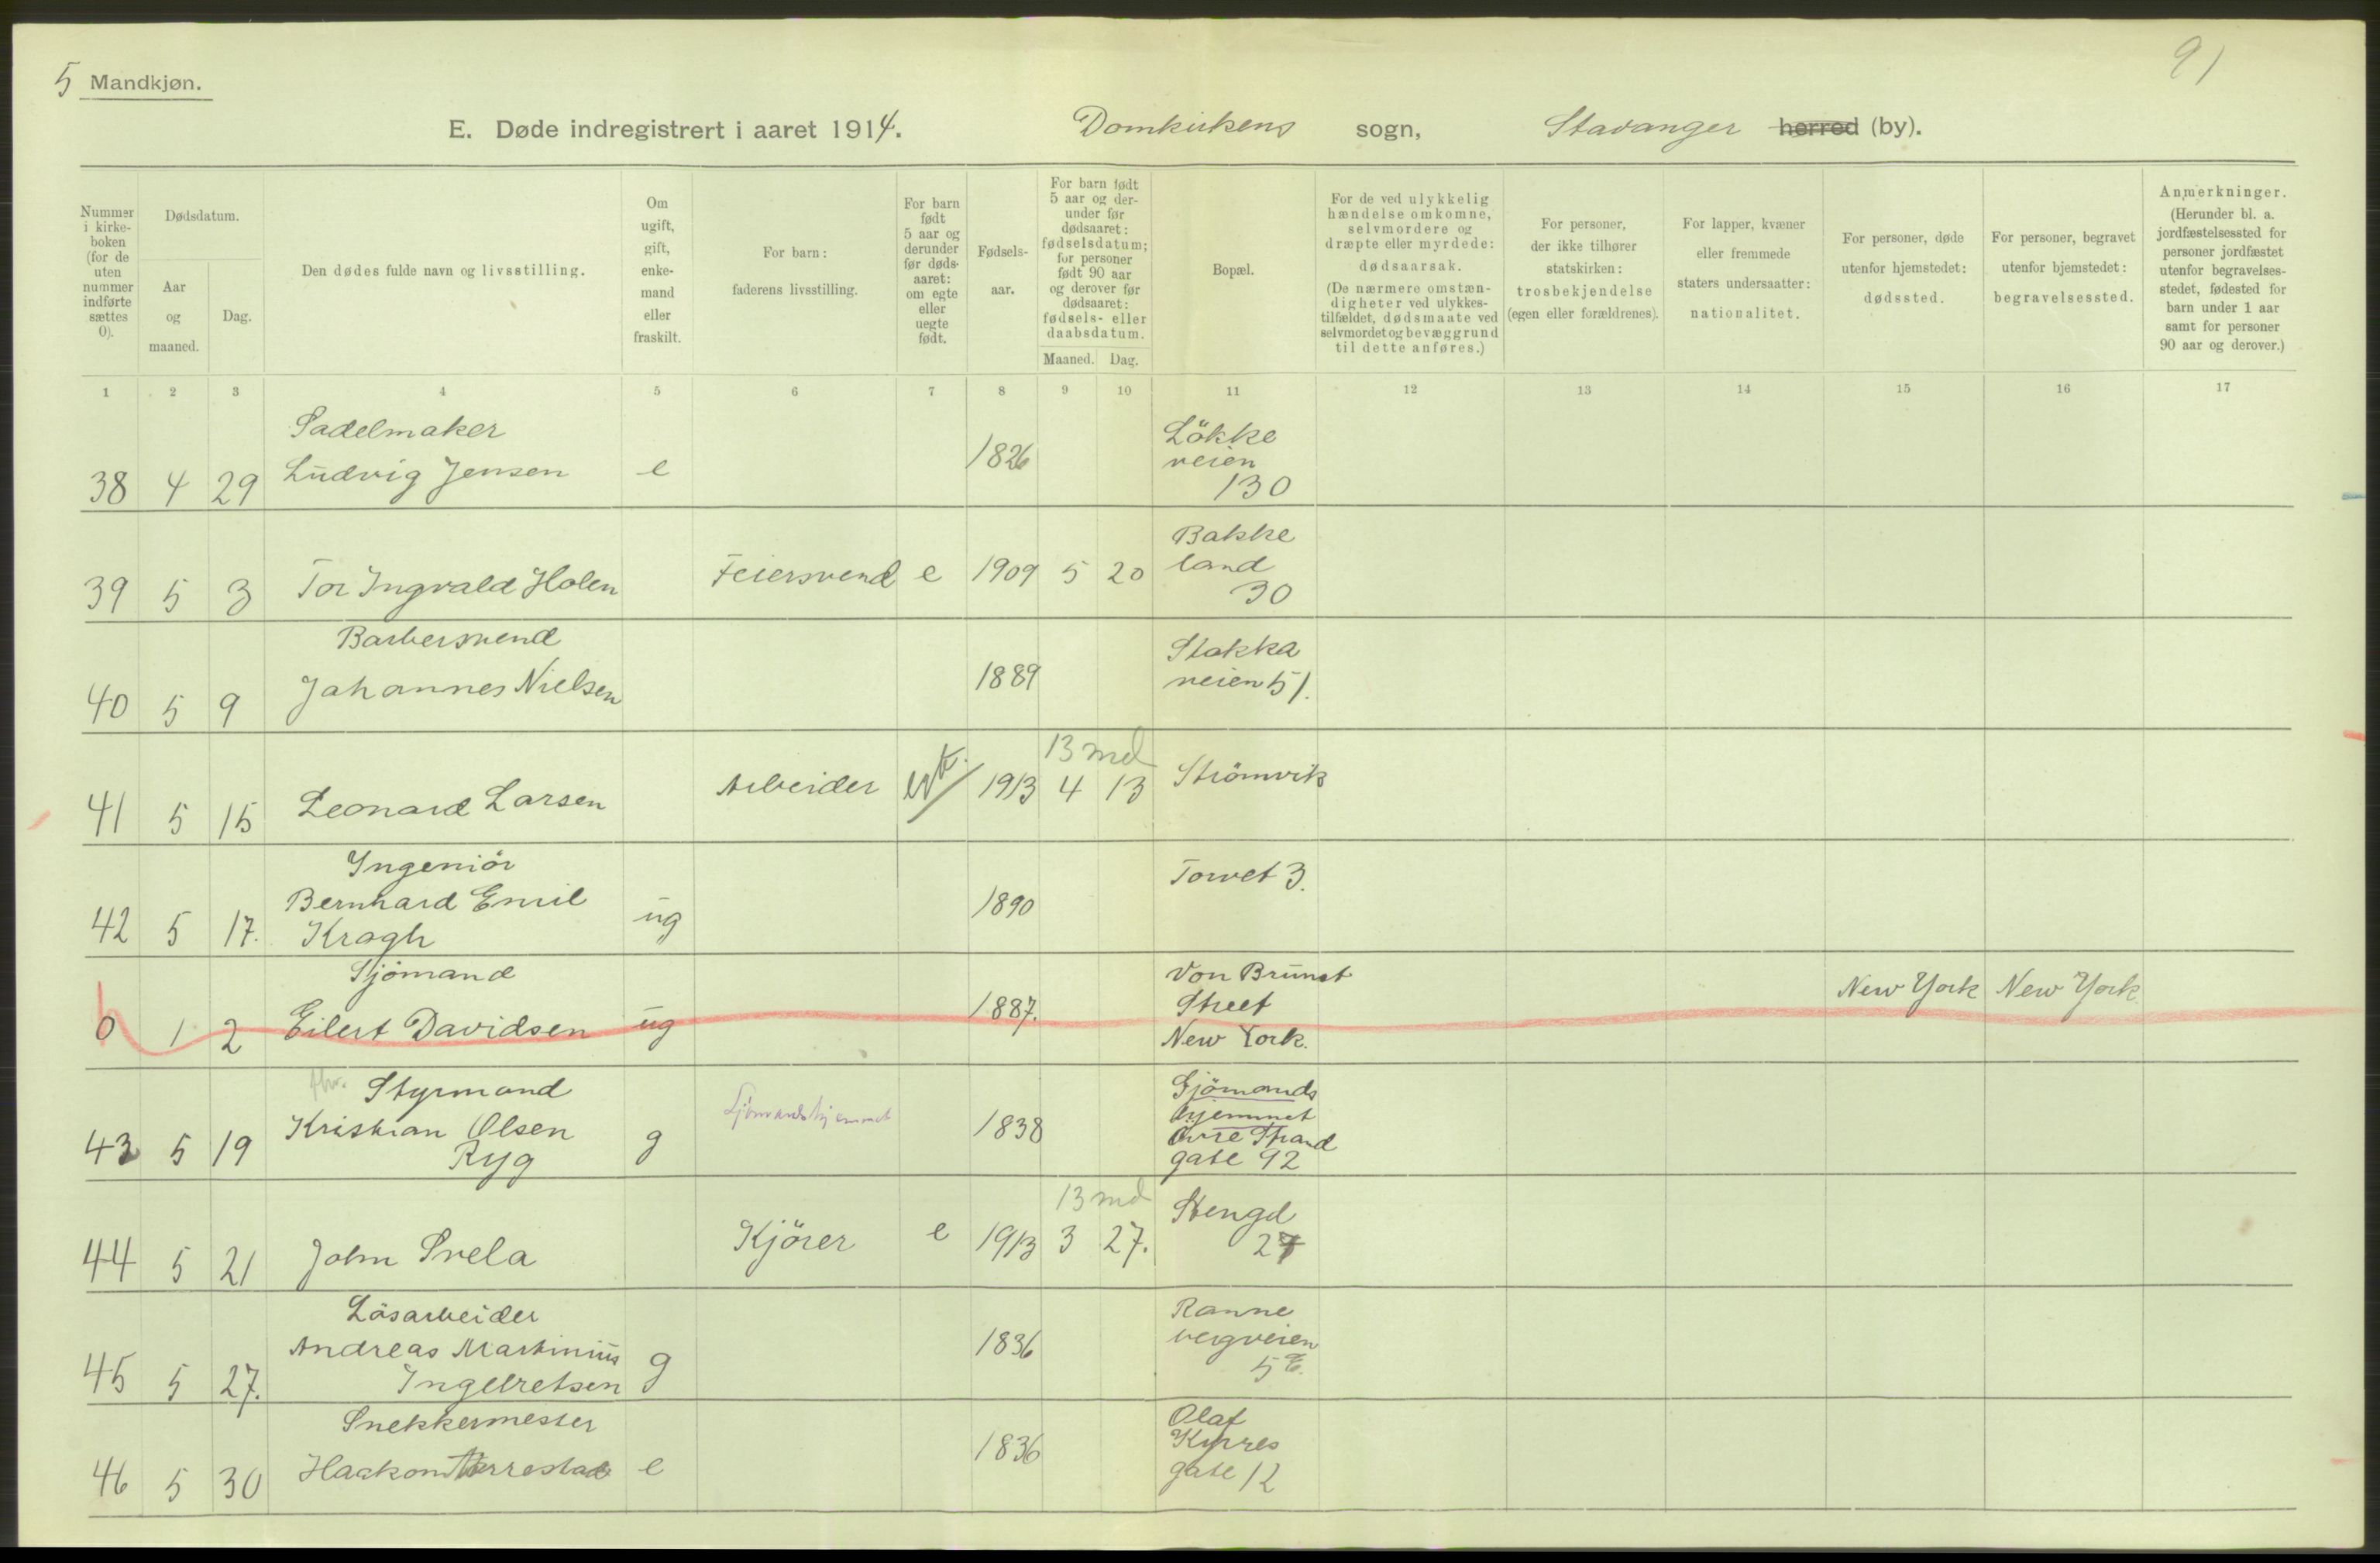 5 Mandkjøn.
91
E. Døde indregistrert i aaret 1914. Domkirkens sogn, Stavanger herred (by).
Nummer i kirke- boken (for de uten nummer indførte sættes 0).
Dødsdatum.
Aar og maaned.
Dag.
Den dødes fulde navn og livsstilling.
Om ugift, gift, enke- mand eller fraskilt.
For barn: faderens livsstilling.
For barn født 5 aar og derunder før døds- aaret: om egte eller uegte født.
Fødsels- aar.
For barn født 5 aar og der- under før dødsaaret: fødselsdatum; for personer født 90 aar og derover før dødsaaret: fødsels- eller daabsdatum.
Maaned. Dag.
Bopæl.
For de ved ulykkelig hændelse omkomne, selvmordere og dræpte eller myrdede: dødsaarsak. (De nærmere omstæn- digheter ved ulykkes- tilfældet, dødsmaate ved selvmordet og bevæggrund til dette anføres.)
For personer, der ikke tilhører statskirken: trosbekjendelse (egen eller forældrenes).
For lapper, kvæner eller fremmede staters undersaatter: nationalitet.
For personer, døde utenfor hjemstedet: dødssted.
For personer, begravet utenfor hjemstedet: begravelsessted.
Anmerkninger. (Herunder bl. a. jordfæstelsessted for personer jordfæstet utenfor begravelses- stedet, fødested for barn under 1 aar samt for personer 90 aar og derover.)
1 2 3 4 5 6 7 8 9 10 11 12 13 14 15 16 17
Sadelmaker
38 4 29 Ludvig Jensen e 1826 Lökke
veien
130
39 5 3 Tor Ingvald Holen Feiersvend e 1909 5 20 Bakke
land
30
Barbersvend
40 5 9 Johannes Nielsen 1889 Stokka
veien 51.
13 md
41 5 15 Leonard Larsen Arbeider 1913 4 13 Strömvik
Ingeniör
42 5 17. Bernhard Emil ug 1890 Torvet 3.
Kragh
Sjömand
0 1 2 Eilert Davidsen ug 1887. Von Brunst
Street
New York.
New York New York
Styrmand
43 5 19 Kristian Olsen g Sjömandshjemmet 1838 Sjömands
Ryg
hjemmet
Övre Strand
gate 92
13 md
44 5 21 John Svela Kjörer e 1913 3 27. Stengd
27
Lösarbeider
45 5 27. Andreas Martinius g 1836 Ranne
Ingebretsen
bergveien
5 E.
Snekkermester
46 5 30 Haakon e 1836 Olaf
Kyrres
gate 12